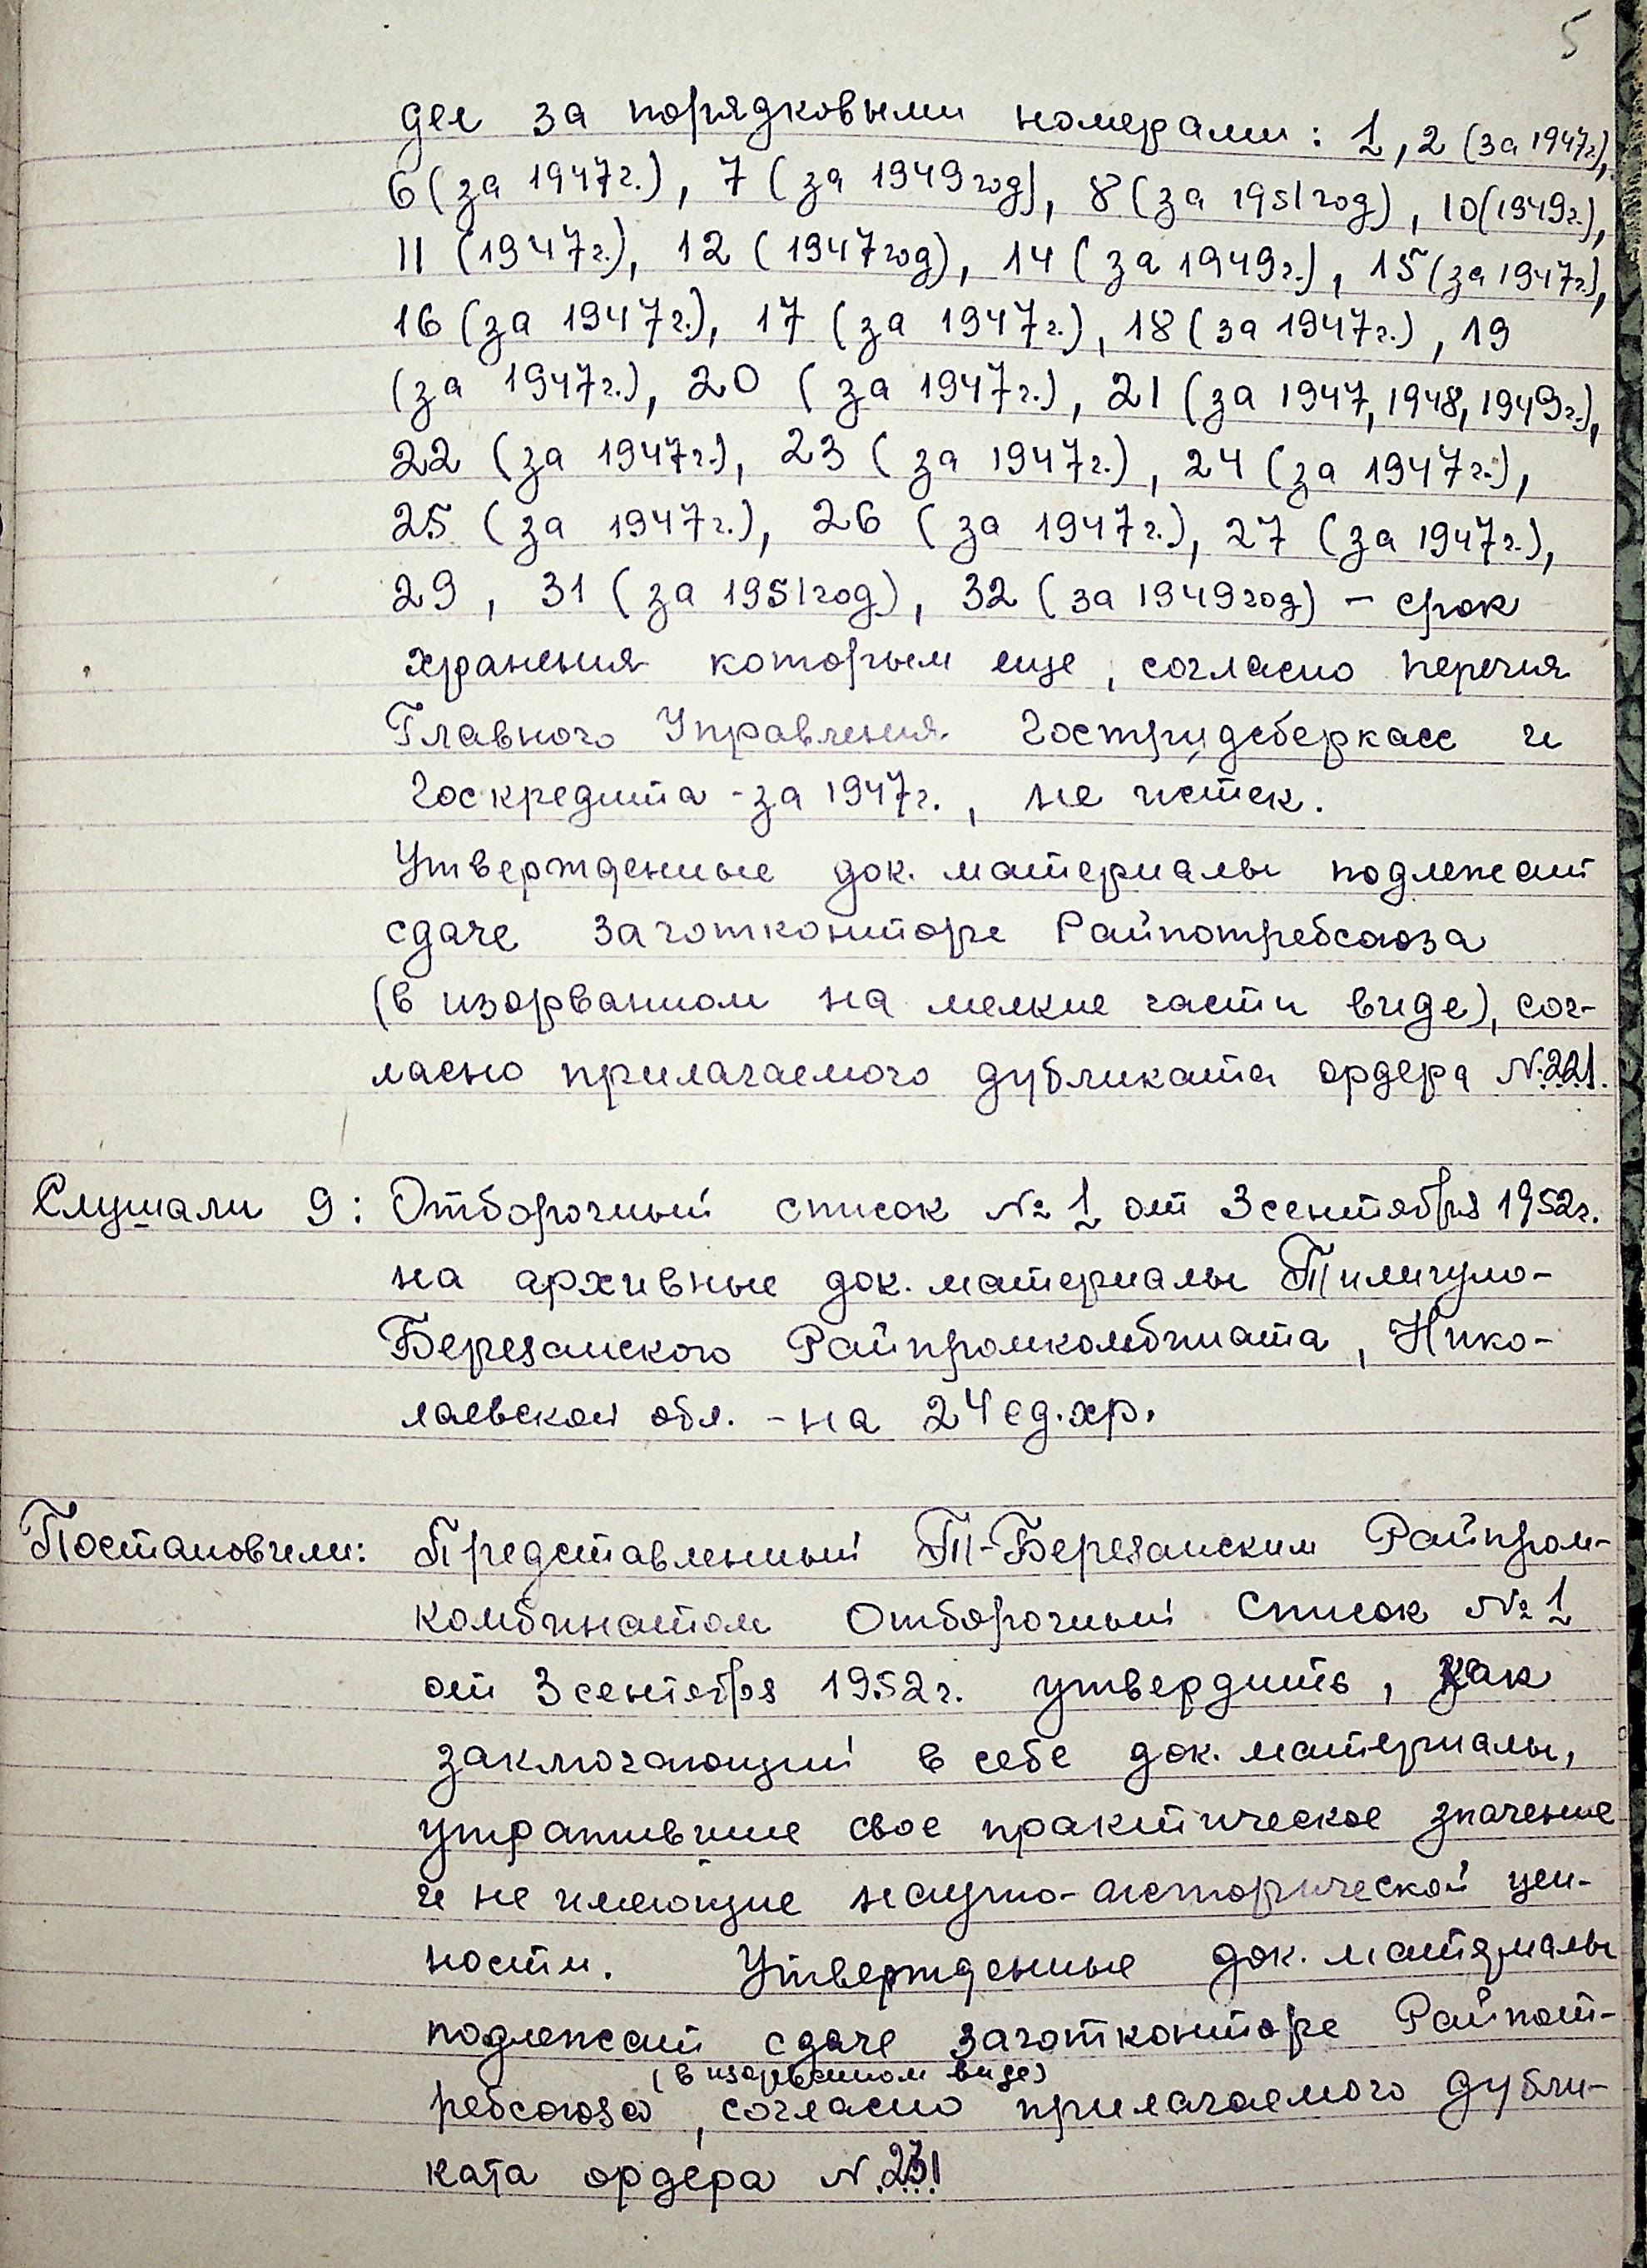 5
дел за порядковыми номерами: 1, 2 (за 1947г.),
6 (за 1947г.), 7 (за 1949 год), 8 (за 1951 год), 10 (1949г.),
11 (1947г.), 12 (1947 год), 14 (за 1949г.), 15 (за 1947г.),
16 (за 1947г.), 17 (за 1947г.), 18 (за 1947г.), 19
(за 1947г.), 20 (за 1947г.), 21 (за 1947, 1948, 1949г.),
22 (за 1947г.), 23 (за 1947г.), 24 (за 1947г.),
25 (за 1947г.), 26 (за 1947г.), 27 (за 1947г.),
29, 31 (за 1951 год), 32 (за 1949 год) - срок
хранения которым еще, согласно перечня
Главного Управления Гострудсберкасс и
Госкредита - за 1947г., не истек.
Утвержденные док. материалы подлежат
сдаче заготконторе Райпотребсоюза
(в изорванном на мелкие части виде), сог-
ласно прилагаемого дубликата ордера №221.
Слушали 9: Отборочный список № 1 от 3 сентября 1952г.
на архивные док. материалы Тилигуло-
Березанского Райпромкомбината, Нико-
лаевской обл. - на 24 ед. хр.
Постановили: Представленный Т-Березанским Райпром-
комбинатом Отборочный Список № 1
от 3 сентября 1952г. утвердить, как
заключающий в себе док. материалы,
утратившие свое практическое значение
и не имеющие научно-исторической цен-
ности. Утвержденные док. материалы
подлежат сдаче заготконторе Райпот-
(в изорванном виде)
ребсоюза, согласно прилагаемого дубли-
ката ордера №